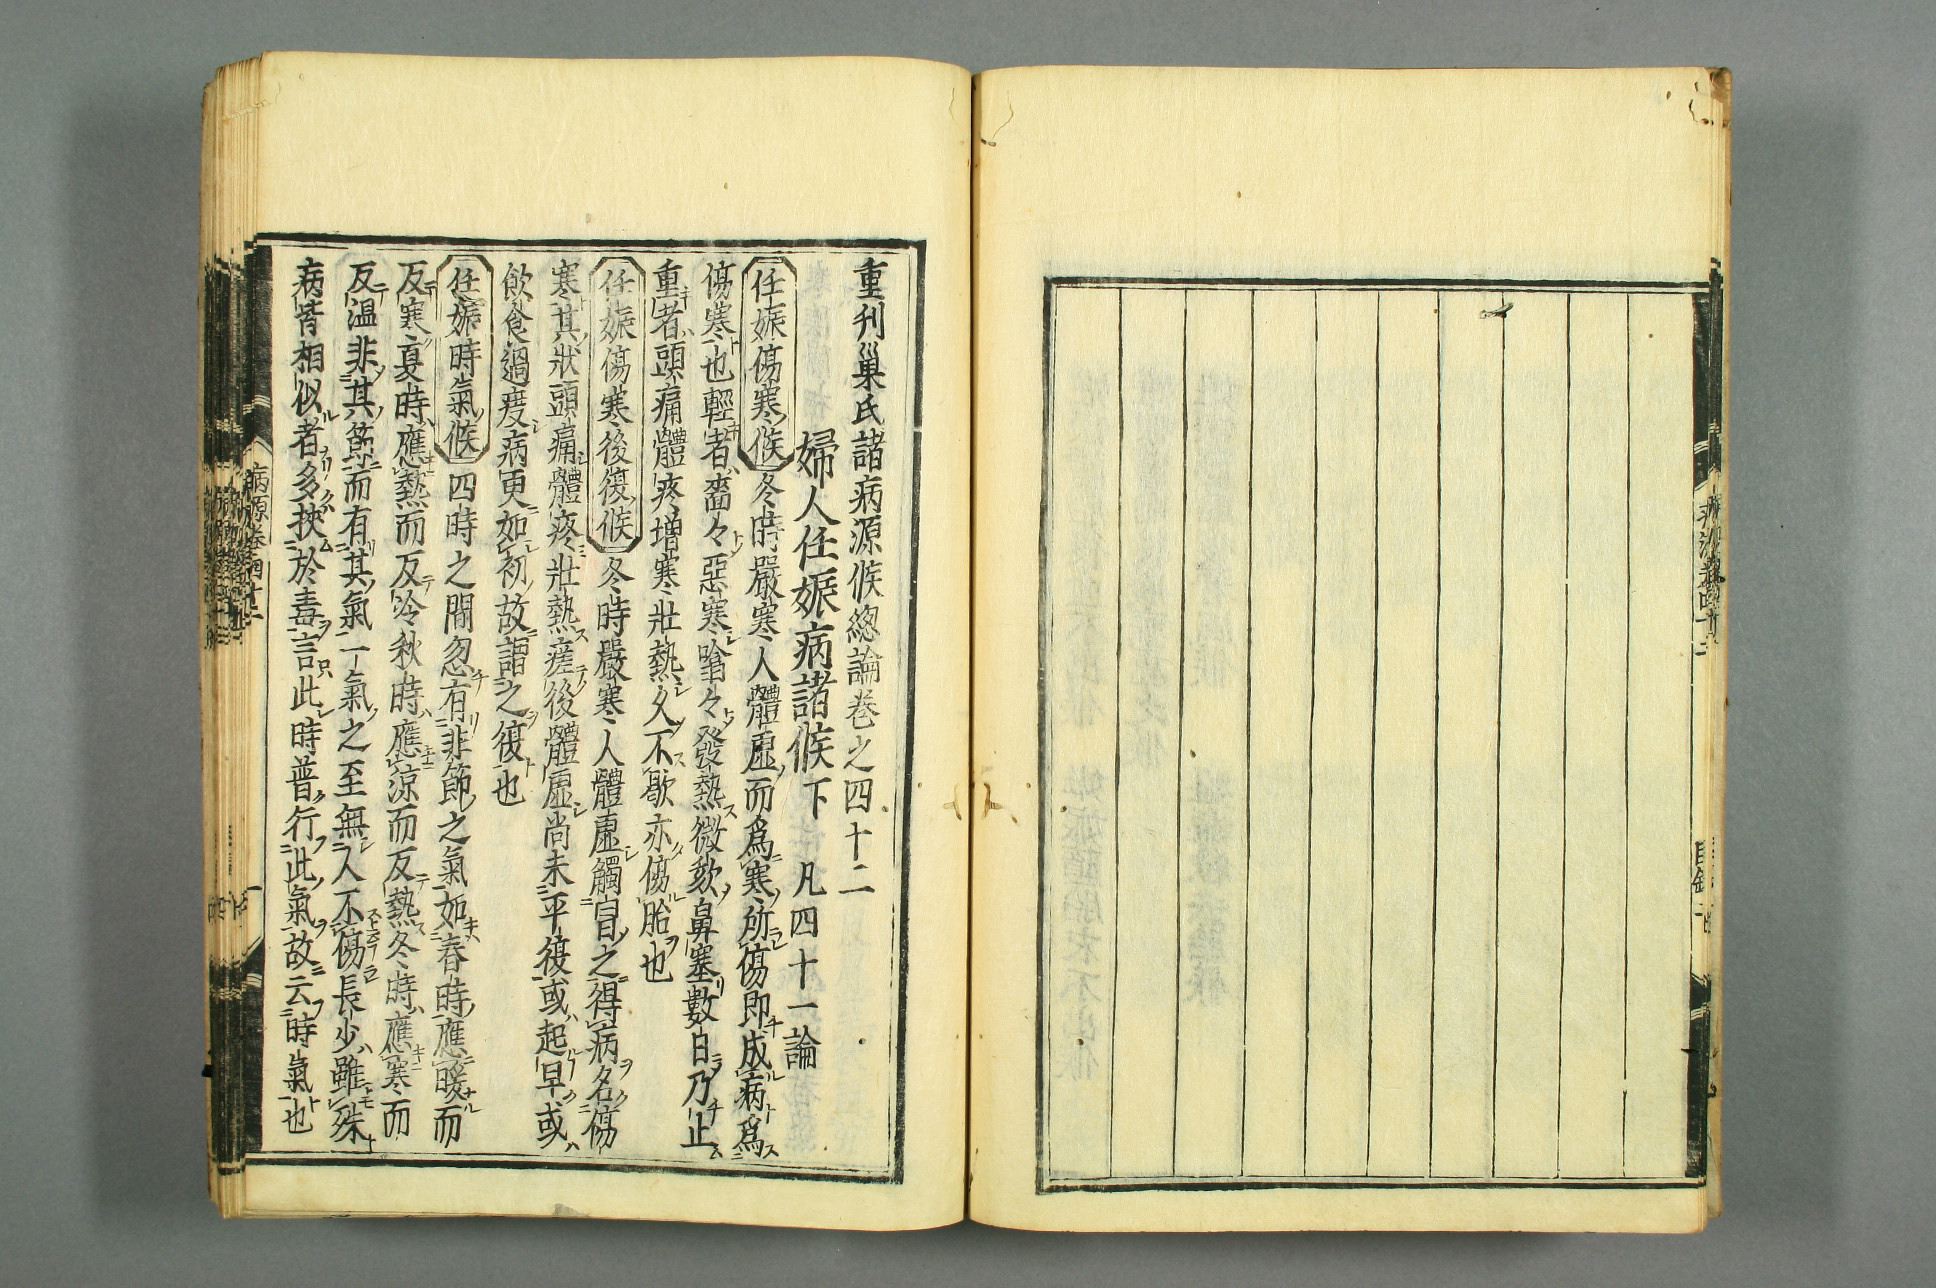 重刊巢氏諸病源候總論卷之四十二
婦人任娠病諸候下　凡四十一論
任娠傷寒候　冬時嚴寒人體虛而爲寒所傷即成病爲
傷寒也輕者嗇々惡寒噏々發熱微欬鼻塞數日乃止
重者頭痛體疼増寒壯熱久不歇亦傷胎也
任娠傷寒後復候　冬時嚴寒人體虛觸冒之得病名傷
寒其狀頭痛體疼壯熱瘥後體虛尚未平復或起早或
飲食過度病更如初故謂之復也
任娠時氣候　四時之間忽有非節之氣如春時應暖而
反寒夏時應熱而反冷秋時應涼而反熱冬時應寒而
反温非其節而有其氣一氣之至無人不傷長少雖殊
病皆相似者多挾於毒言此時普行此氣故云時氣也
病源卷四十二